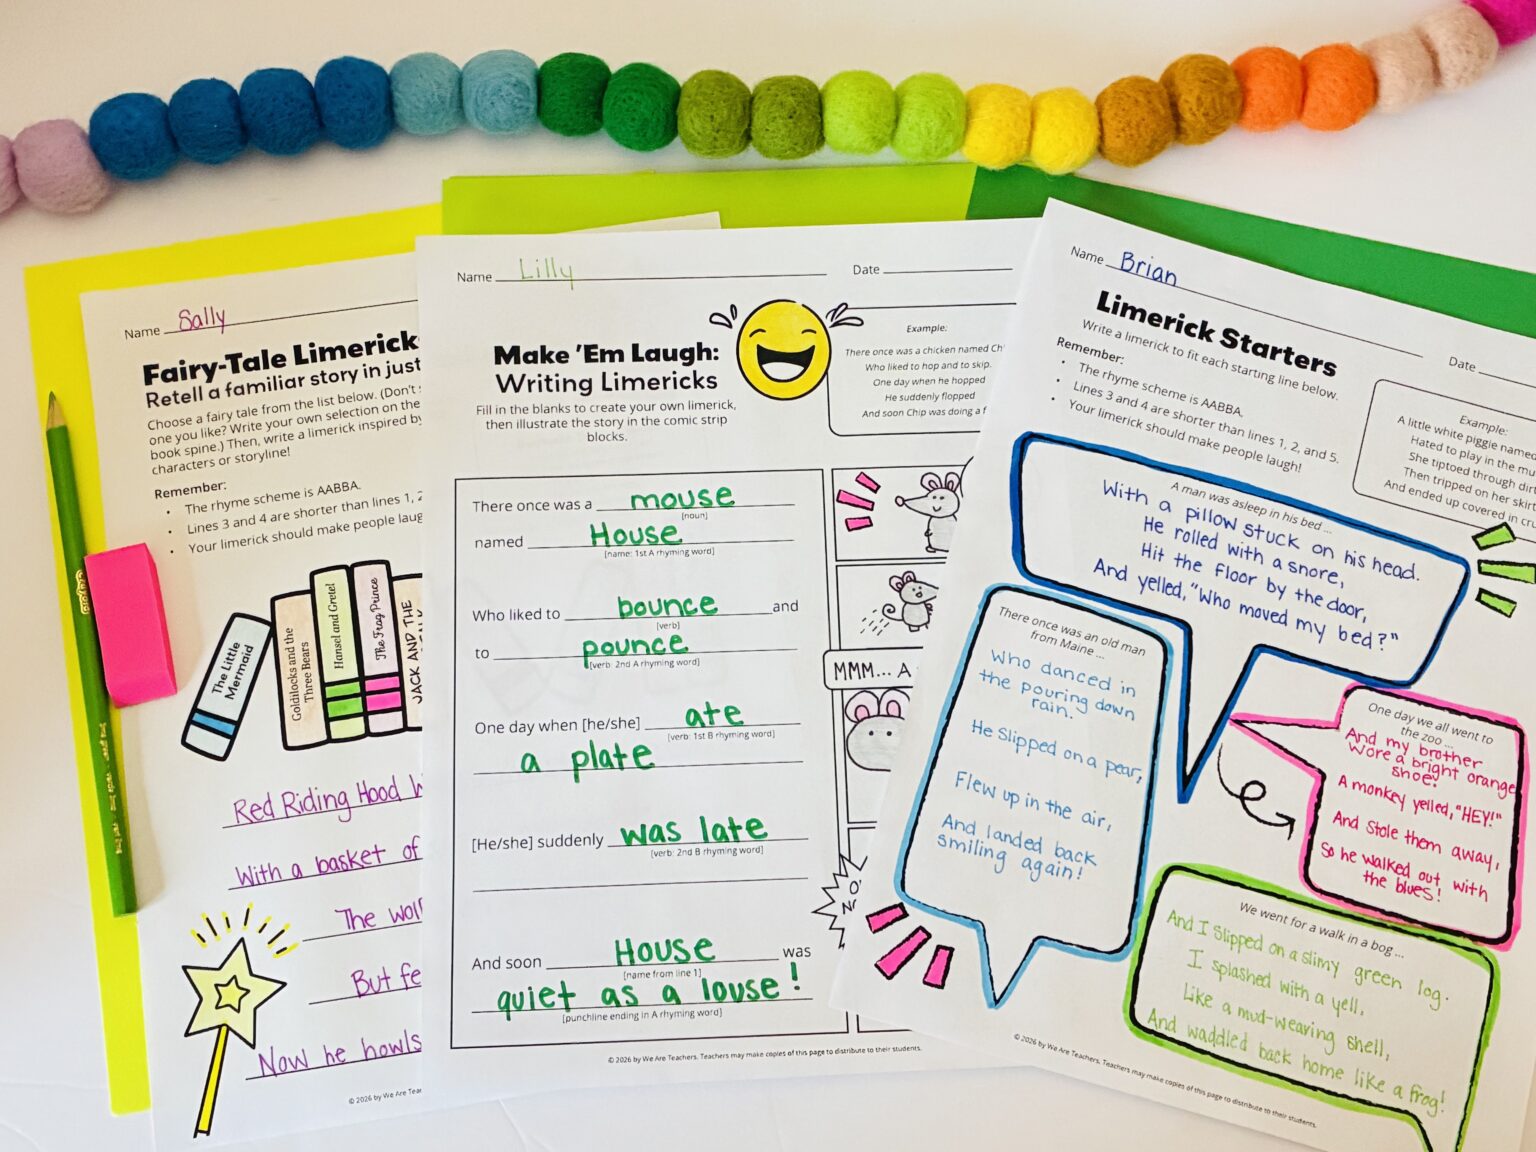 Name Sally
Fairy-Tale Limerick
Retell a familiar story in just
Choose a fairy tale from the list below. (Don't
one you like? Write your own selection on the
book spine.) Then, write a limerick inspired by
characters or storyline!
Remember:
• The rhyme scheme is AABBA.
• Lines 3 and 4 are shorter than lines 1, 2
• Your limerick should make people laug
The Little
Mermaid
Goldilocks and the
Three Bears
Hansel and Gretel
The Frog Prince
JACK AND THE
Red Riding Hood
With a basket of
The wolf
But fe
Now he howls
© 2026 by We Are Teac
Name Lilly
Date
Make 'Em Laugh:
Writing Limericks
Fill in the blanks to create your own limerick,
then illustrate the story in the comic strip
blocks.
Example:
There once was a chicken named Ch
Who liked to hop and to skip.
One day when he hopped
He suddenly flopped
And soon Chip was doing a f
There once was a mouse
[noun]
named House
[name: 1st A rhyming word]
Who liked to bounce and
[verb]
to pounce
[verb: 2nd A rhyming word]
One day when [he/she] ate
[verb: 1st B rhyming word]
a plate
[He/she] suddenly was late
[verb: 2nd B rhyming word]
And soon House was
[name from line 1]
quiet as a louse!
[punchline ending in A rhyming word]
MMM... A
NO!
© 2026 by We Are Teachers. Teachers may make copies of this page to distribute to their students.
Name Brian
Date
Limerick Starters
Write a limerick to fit each starting line below.
Remember:
• The rhyme scheme is AABBA.
• Lines 3 and 4 are shorter than lines 1, 2, and 5.
• Your limerick should make people laugh!
Example:
A little white piggie named
Hated to play in the mu
She tiptoed through dirt
Then tripped on her skirt
And ended up covered in cru
A man was asleep in his bed ...
With a pillow stuck on his head.
He rolled with a snore,
Hit the floor by the door,
And yelled, "Who moved my bed?"
There once was an old man
from Maine ...
Who danced in
the pouring down
rain.
He slipped on a pear,
Flew up in the air,
And landed back
smiling again!
One day we all went to
the zoo ...
And my brother
wore a bright orange
shoe.
A monkey yelled, "HEY!"
And stole them away,
So he walked out with
the blues!
We went for a walk in a bog ...
And I slipped on a slimy green log.
I splashed with a yell,
Like a mud-wearing shell,
And waddled back home like a frog!
© 2026 by We Are Teachers. Teachers may make copies of this page to distribute to their students.